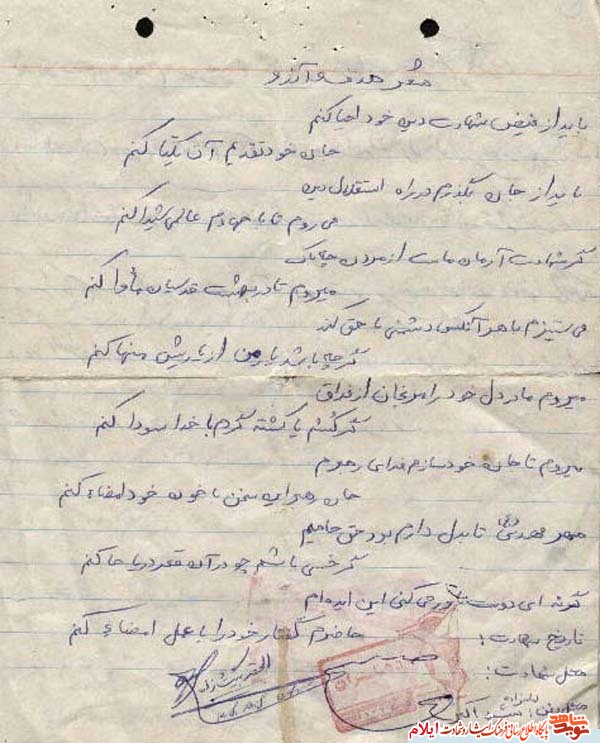 شعر هدف و آرزو
باید از فیض شهادت دین خود احیا کنم
جان خود تقدیم آن یکتا کنم
باید از جان بگذرم در راه استقلال دین
می روم تا با جهادم عالمی شیدا کنم
گر شهادت آرمان ماست از مردن چه باک
میروم تا در بهشت قدسیان مأوا کنم
می ستیزم با هر آنکس دشمنی با حق کند
گر چه باشد یار من از یاریش منها کنم
میروم مادر دل خود را مرنجان از فراق
گر کُشم یا کشته گردم با خدا سودا کنم
میروم تا جان خود سازم فدای رهبرم
جان رهبر این سخن با خون خود امضاء کنم
مهر مهدی تا بدل دارم بود حق حامیم
گر خسی باشم چو در آن قعر دریا جا کنم
گر نه ای دوست باور می کنی این ایده ام
حاضرم گفتار خود را با عمل امضاء کنم
تاریخ شهادت:
محل شهادت:
محل دفن:
پایگاه اطلاع رسانی فرهنگ ایثار و شهادت ایلام
نوید شاهد